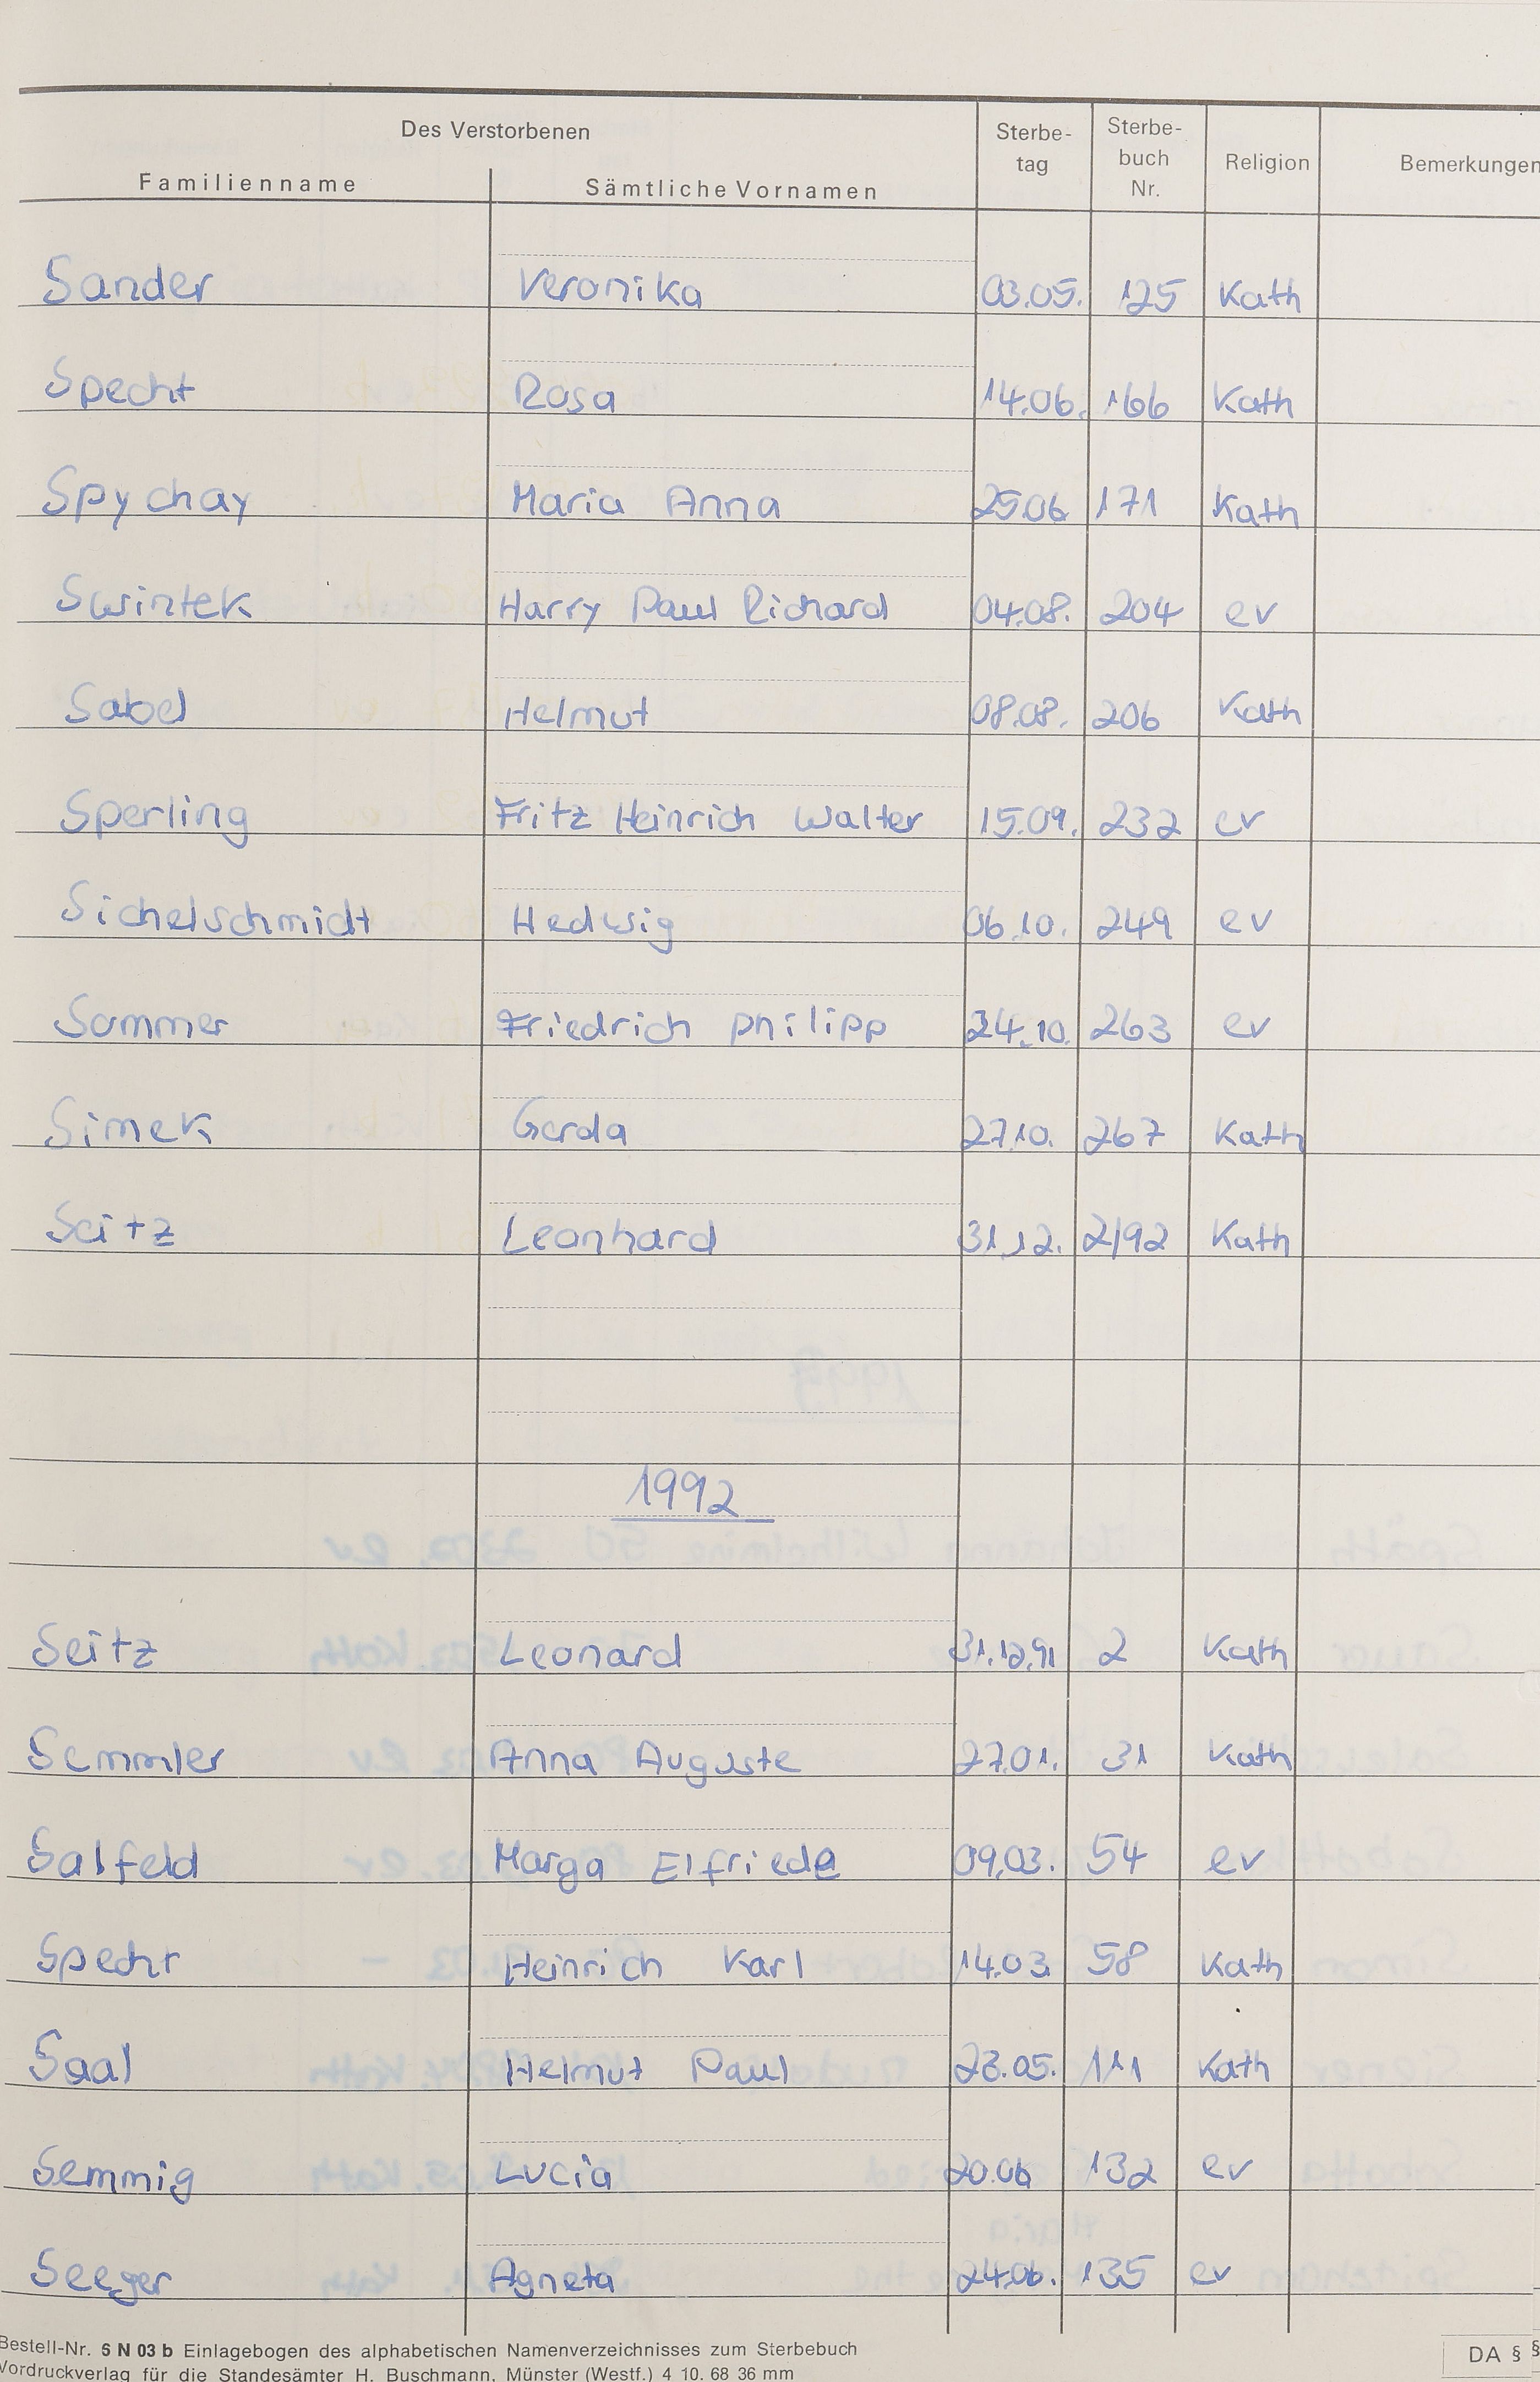 Des Verstorbenen
Familienname Sämtliche Vornamen Sterbe-tag Sterbe-buch Nr. Religion Bemerkungen
Sander Veronika 03.05. 125 Kath
Specht Rosa 14.06. 166 Kath
Spychay Maria Anna 25.06 171 Kath
Swintek Harry Paul Richard 04.08. 204 ev
Sabel Helmut 08.08. 206 Kath
Sperling Fritz Heinrich Walter 15.09. 232 ev
Sichelschmidt Hedwig 06.10. 249 ev
Sommer Friedrich Philipp 24.10. 263 ev
Simek Gerda 27.10. 267 Kath
Seitz Leonhard 31.12. 2/92 Kath
1992
Seitz Leonard 31.12.91 2 Kath
Semmler Anna Auguste 27.01. 31 Kath
Salfeld Marga Elfriede 09.03. 54 ev
Specht Heinrich Karl 14.03. 58 Kath
Saal Helmut Paul 23.05. 111 Kath
Semmig Lucia 20.06 132 ev
Seeger Agneta 24.06. 135 ev
Bestell-Nr. 6 N 03 b Einlagebogen des alphabetischen Namenverzeichnisses zum Sterbebuch
Vordruckverlag für die Standesämter H. Buschmann, Münster (Westf.) 4 10. 68 36 mm
DA § §